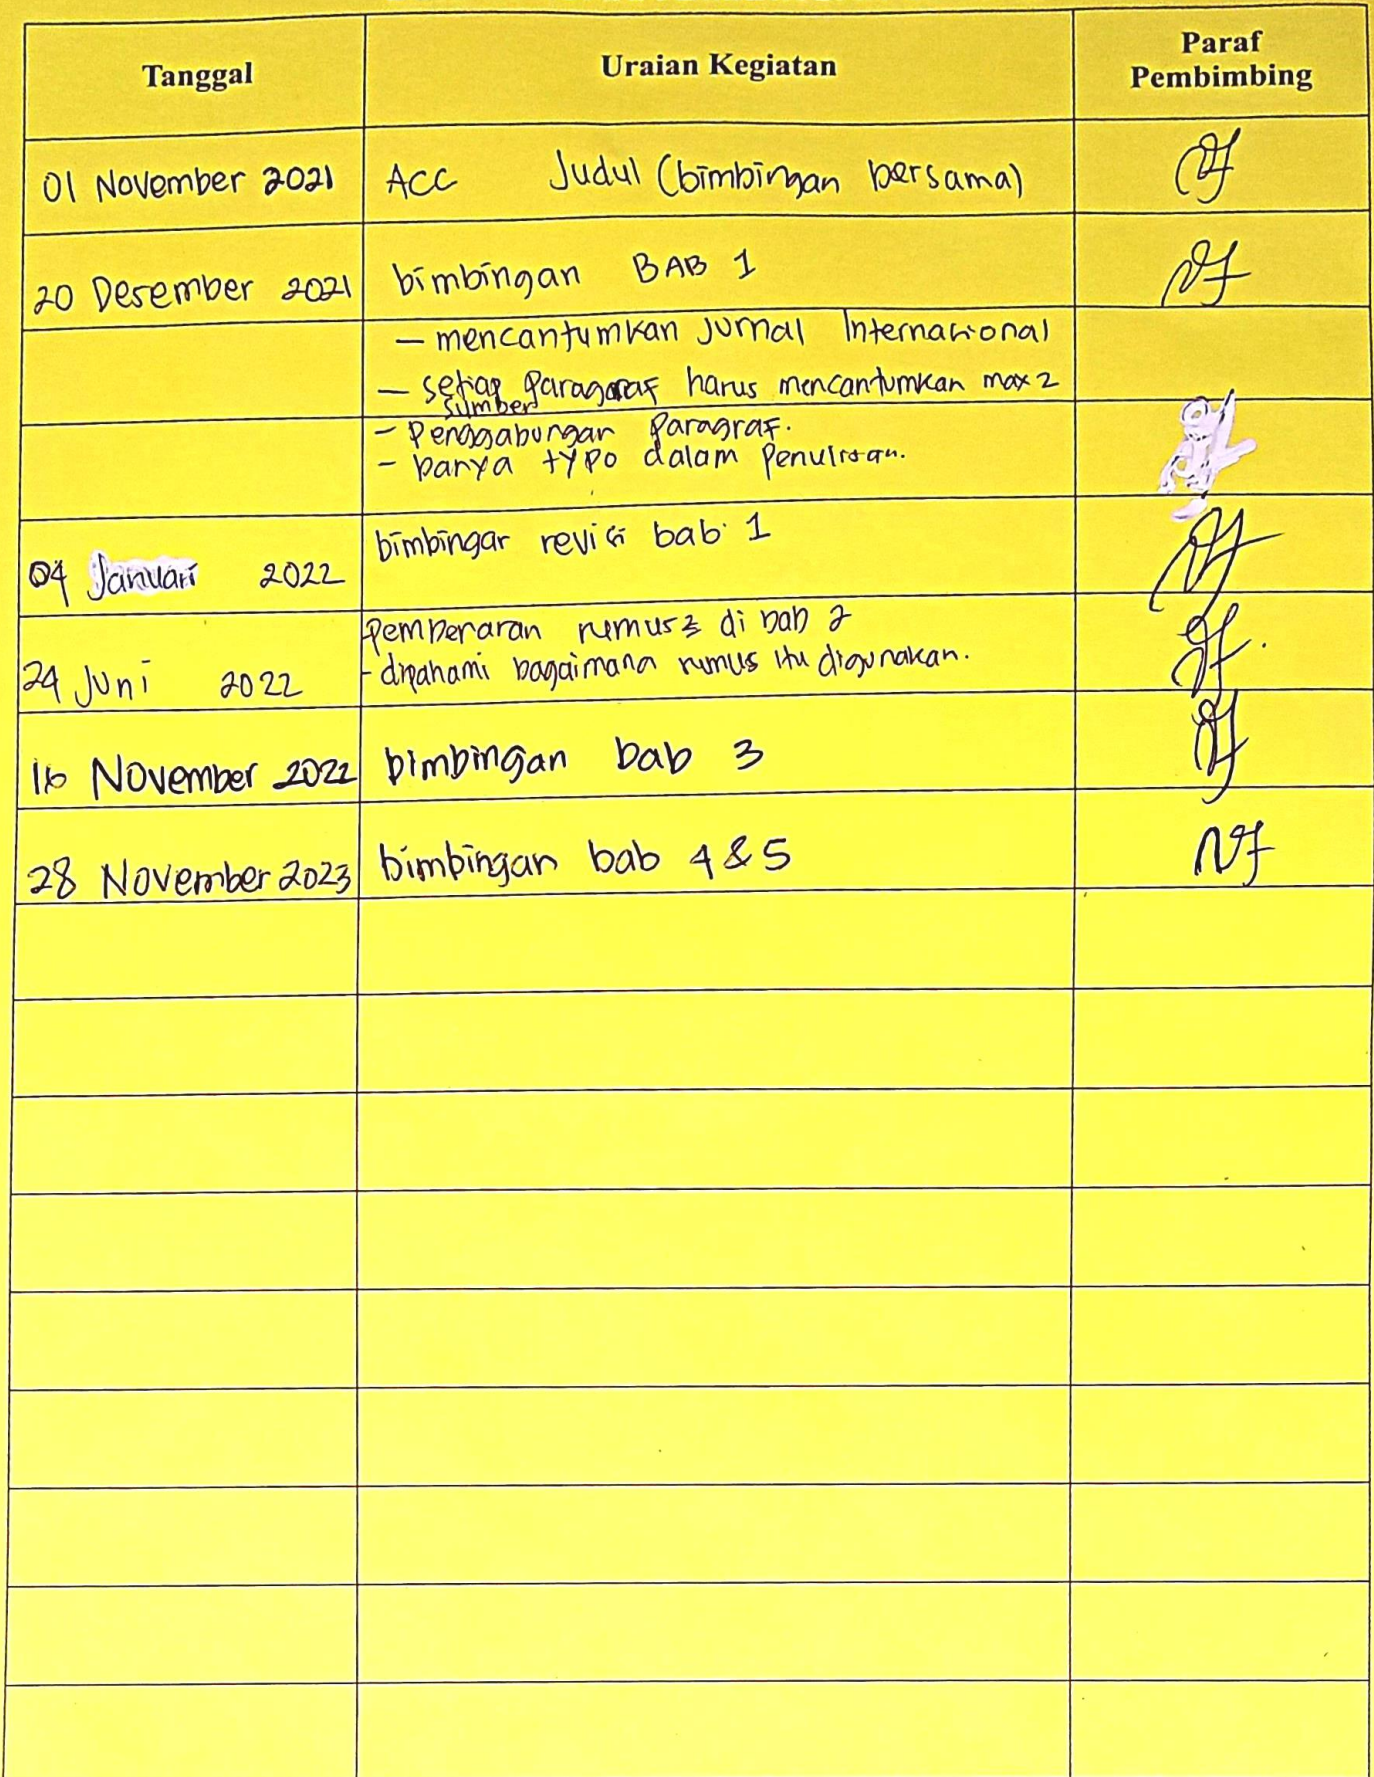 Tanggal
Uraian Kegiatan
Paraf
Pembimbing
01 November 2021 ACC Judul (bimbingan bersama)
20 Desember 2021 bimbingan BAB 1
– mencantumkan Jurnal Internasional
– setiap paragaraf harus mencantumkan max 2
sumber
- Penggabungan Paragraf.
- banya typo dalam Penulisan.
04 Januari 2022 bimbingan revisi bab 1
24 Juni 2022 Pembenaran rumus2 di bab 2
- dipahami bagaimana rumus itu digunakan.
16 November 2022 bimbingan bab 3
28 November 2023 bimbingan bab 4 & 5